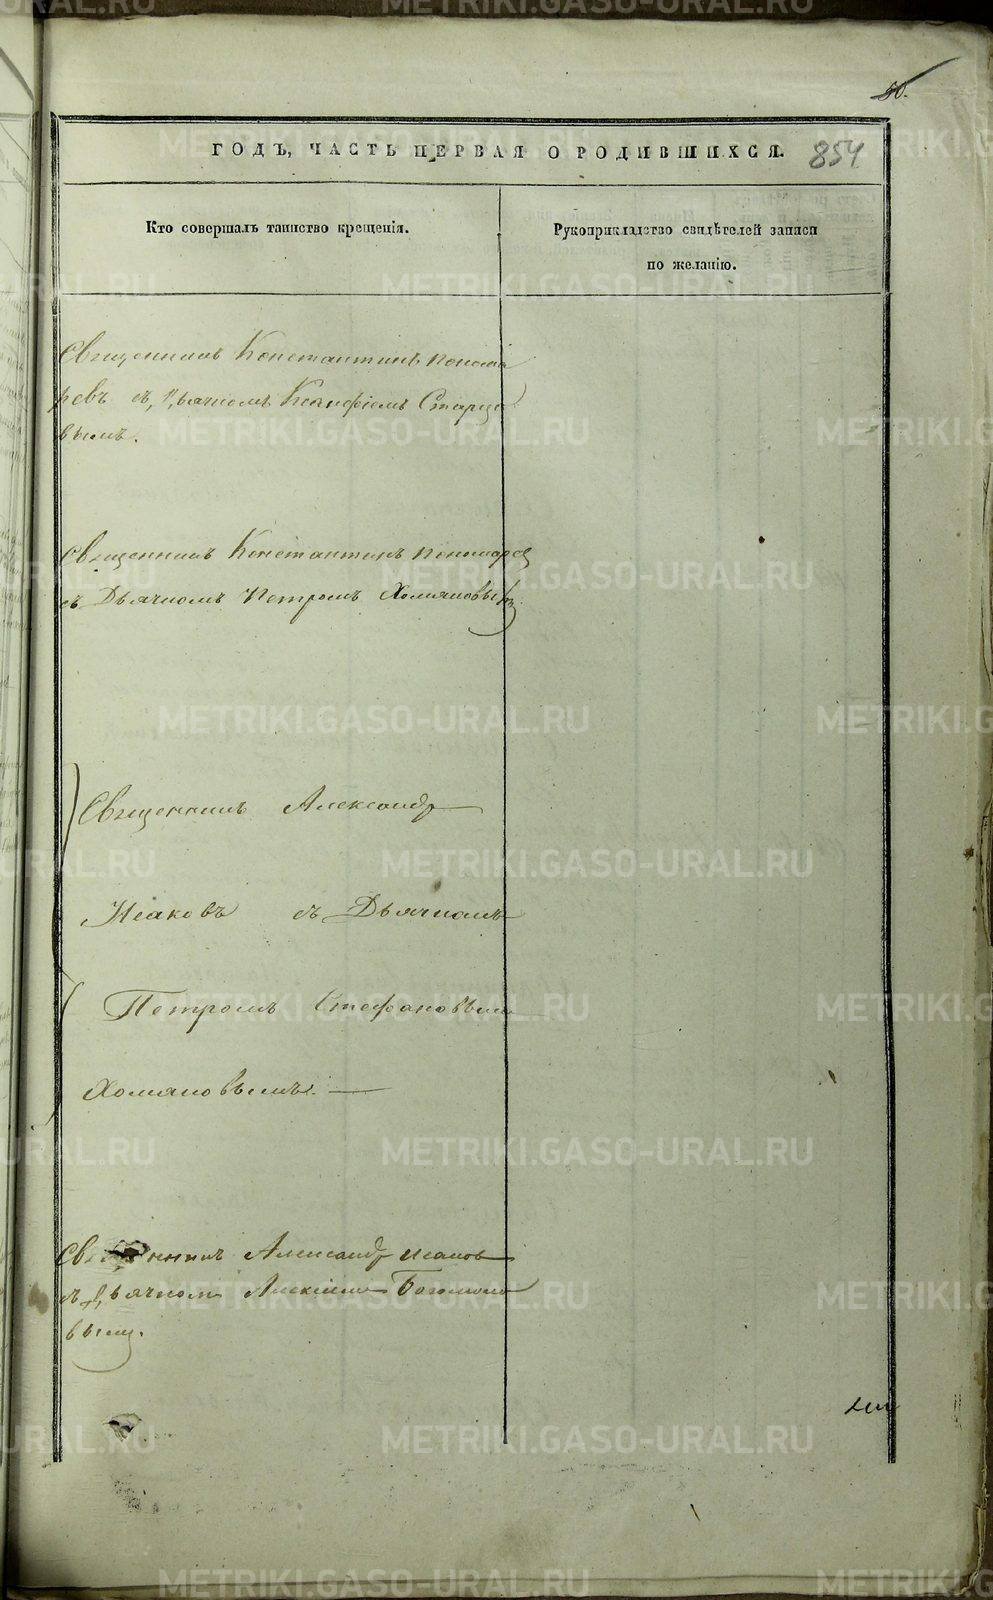 50.
ГОДЪ, ЧАСТЬ ПЕРВАЯ О РОДИВШИХСЯ. 854
Кто совершалъ таинство крещенія.
Рукоприкладство свидѣтелей записи
по желанію.
Священникъ Константинъ Понома
ревъ съ Дьячкомъ Ксанфіемъ Старце
вымъ.
Священникъ Константинъ Пономарев
съ Дьячкомъ Петромъ Хомяковым
Священникъ Александр
Исаковъ съ Дьячкомъ
Петромъ Стефановым
Хомяковымъ.
Александр Исаков
съ Дьячком Алексіем Богомоло
вым.
METRIKI.GASO-URAL.RU